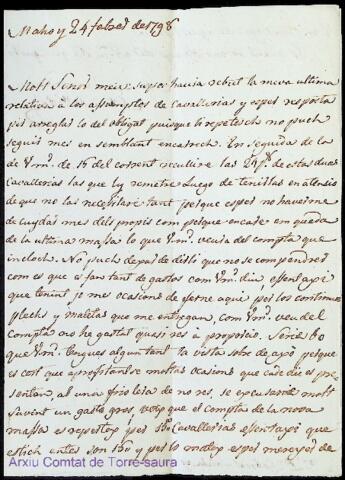 Mahó y 24 febrer de 1798
Molt Señor meu: supòs haurá rebut la meva ultima
relativa á los assumptos de Cavallerias y espera resposta
per arreglar lo del obligat puisque li repetesch no puch
seguir mes en semblant encarrech. En seguida de la
de Vm. de 16 del corrent recullire las 24 de estas duas
Cavallerias las que ly remetre luego de tenirlas en atensio
de que no las necessitare tant perque esper no haver me
de cuydar mes dels propis com perque encare em queda
de la ultima massa lo que Vm. veura del compta que
incloch. No puch dexar de dirli que no se compendrer
com es que es fan tant de gastos com Vm. diu essent axi
que tenint je mes ocasions de ferne aqui per los continuos
plechs y maletas que me entregan, com Vm. veu del
compta no he gastat quasi res á proporcio. Seria bo
que Vm. tingues algun tant la vista sobre de axó perque
es cert que aprofitantse moltas ocasions que cade die es pre-
sentan, al una frioleia de no res, se excusaria molt
havent un gasto gros, y
massa es repertex per las Cavallerias essent axi que
estich entes son 160 y per lo matex
Arxiu Comtat de Torre-saura